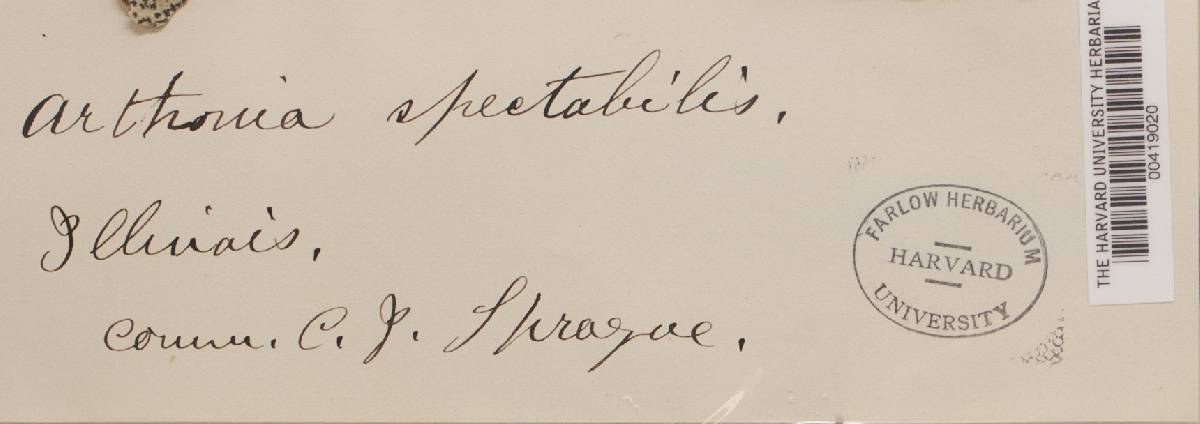 Arthonia spectabilis.
Illinois.
comm. C. J. Sprague.
FARLOW HERBARIUM
HARVARD
UNIVERSITY
THE HARVARD UNIVERSITY HERBARIA
00419020